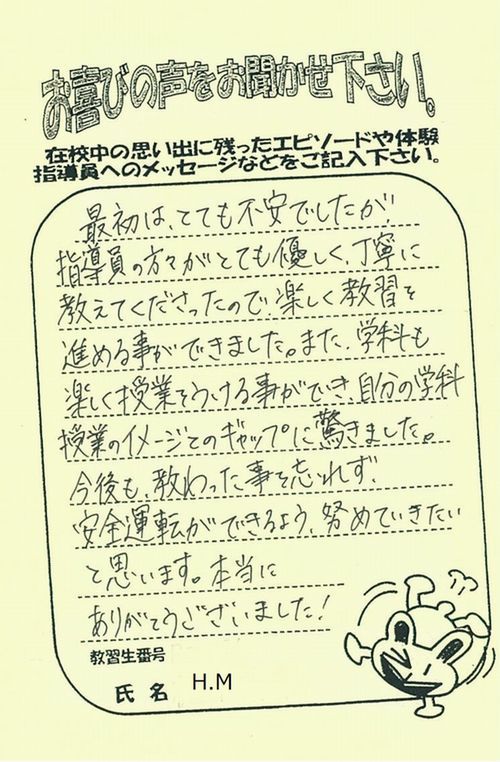 お喜びの声をお聞かせ下さい。
在校中の思い出に残ったエピソードや体験
指導員へのメッセージなどをご記入下さい。
最初は、とても不安でしたが、
指導員の方々がとても優しく、丁寧に
教えてくださったので、楽しく教習を
進める事ができました。また、学科も
楽しく授業をうける事ができ、自分の学科
授業のイメージとのギャップに驚きました。
今後も、教わった事を忘れず、
安全運転ができるよう、努めていきたい
と思います。本当に
ありがとうございました!
教習生番号
氏名 H.M